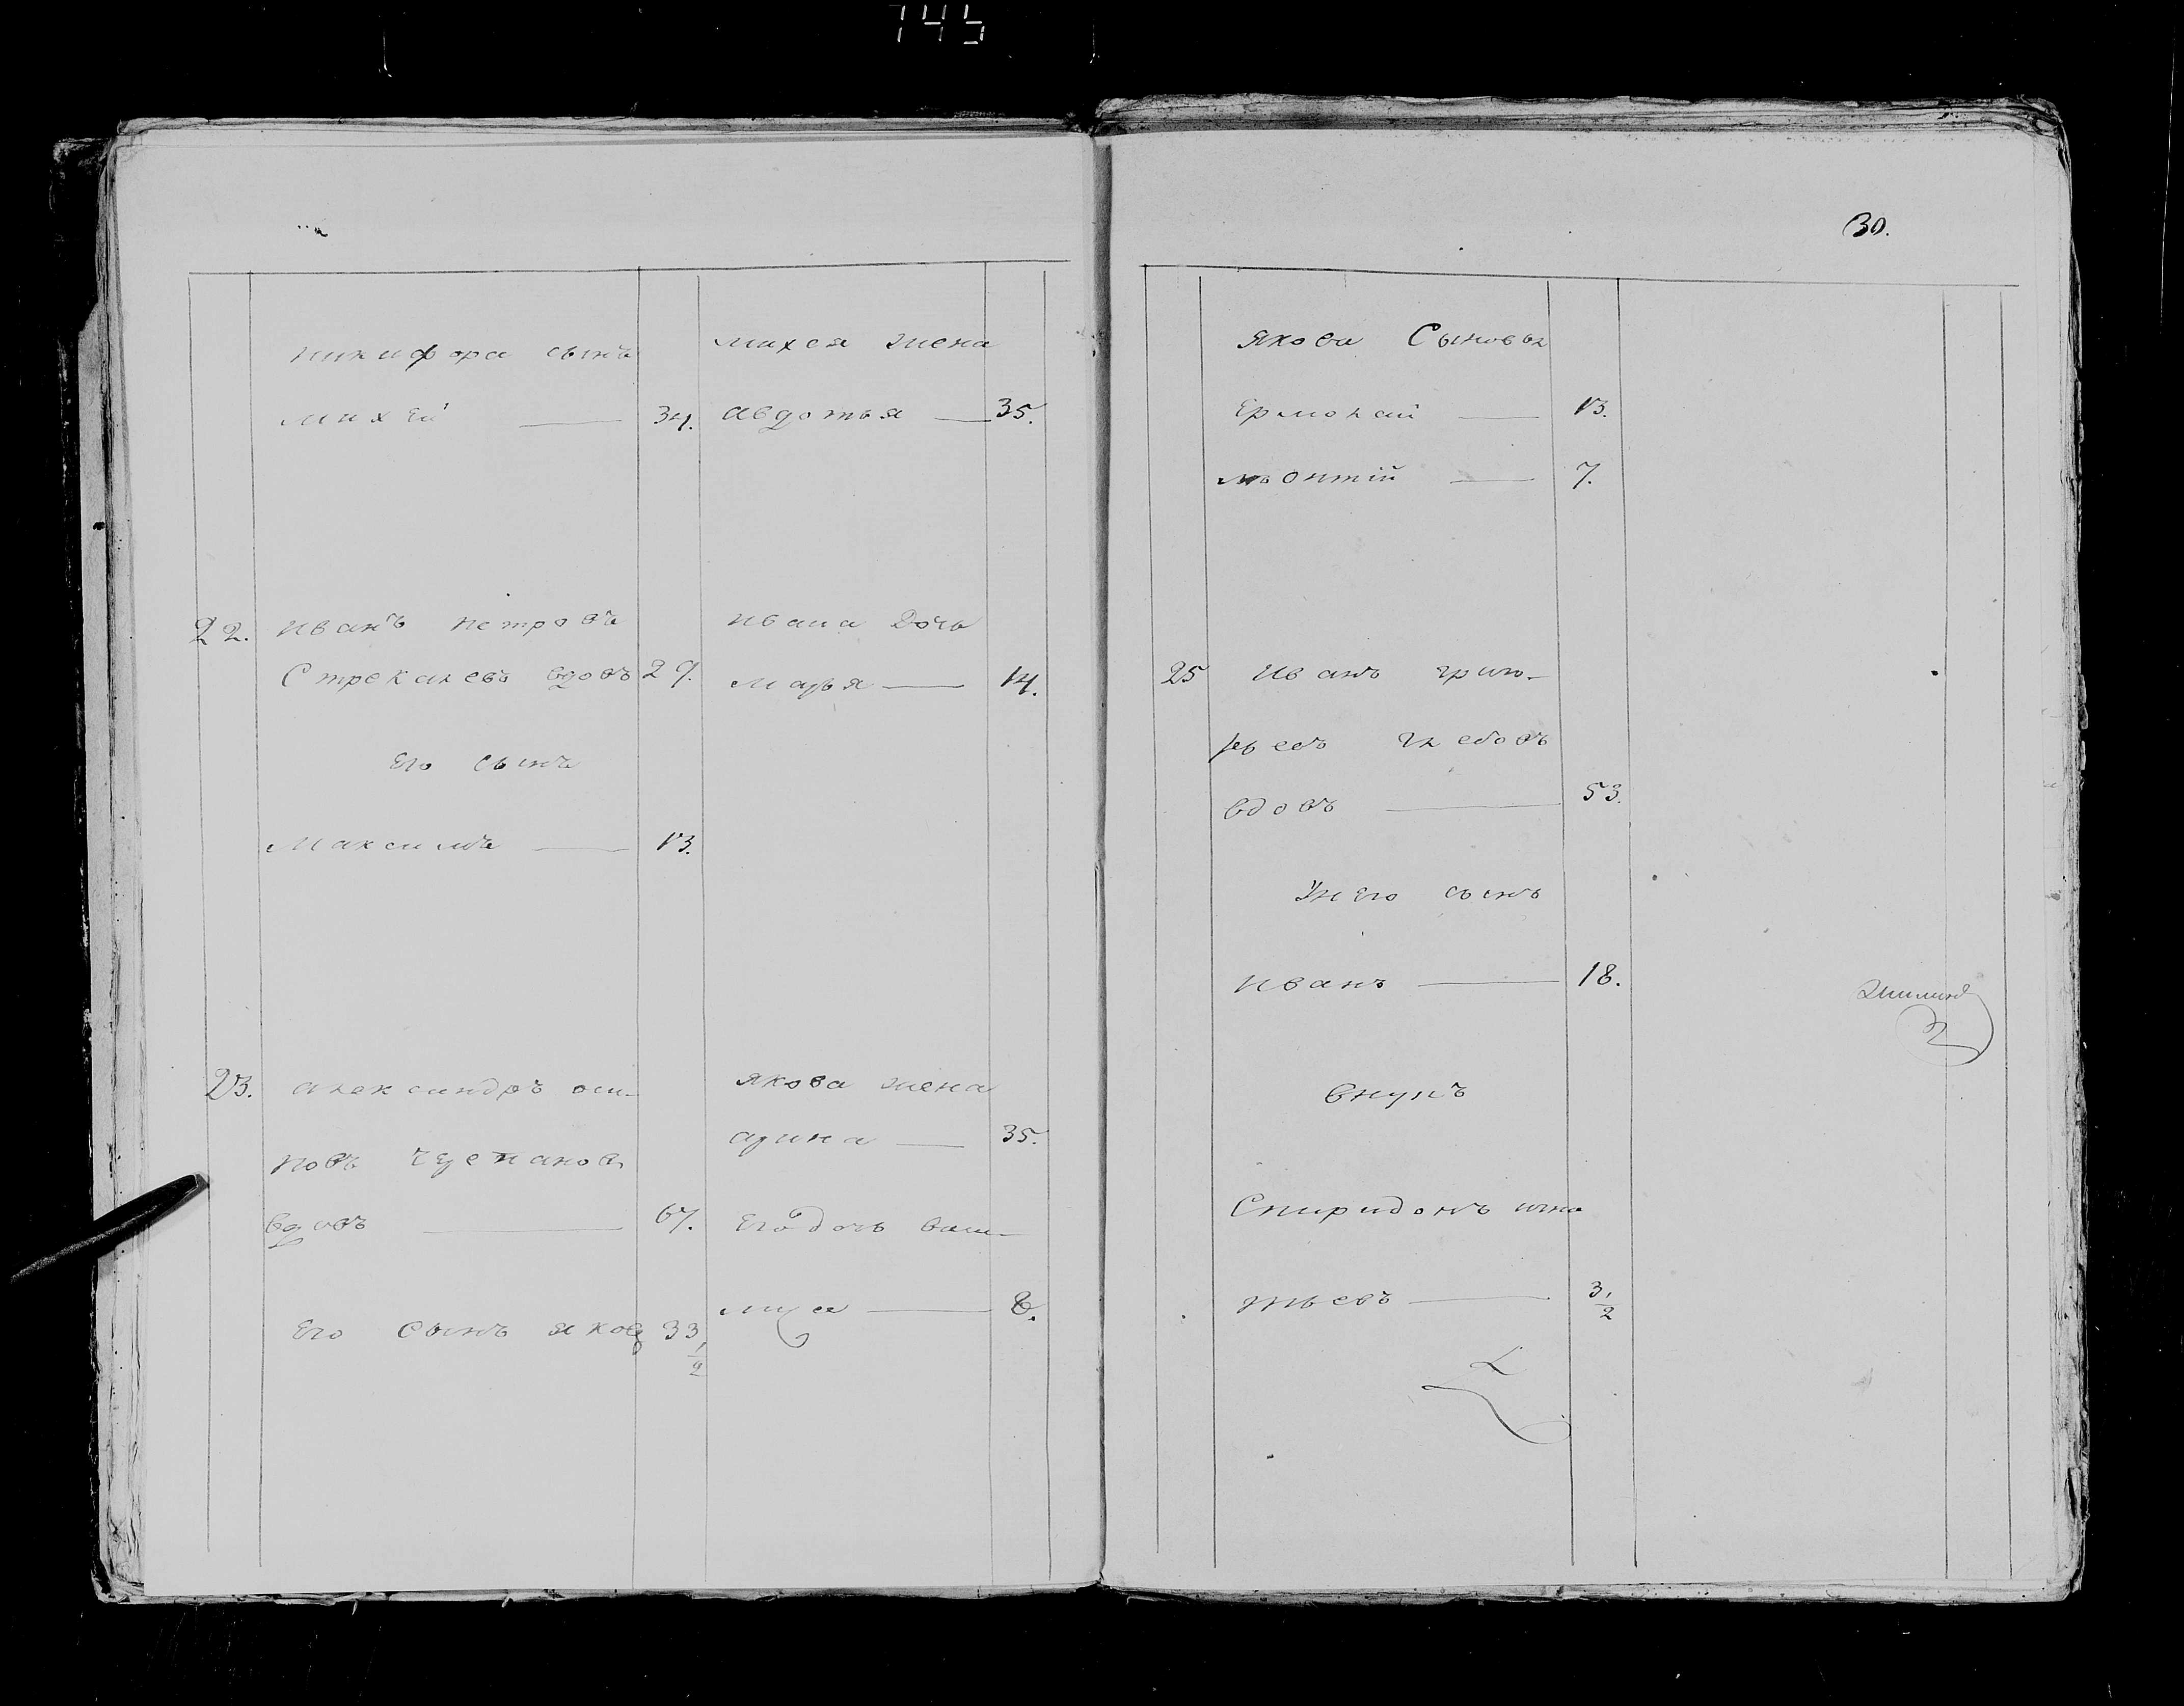 145
никифора сынъ
михей 34.
михея жена
авдотья 35.
22. иванъ петровъ
Стрекалевъ вдовъ 29.
ивана дочь
марья 14.
Его сынъ
Максимъ 13.
23. александръ оси-
повъ
вдовъ 67.
Его сынъ яковъ 33 1/2
якова жена
арина 35.
Его дочь васи-
лиса 8.
30.
якова Сыновья
Ермолай 13.
леонтій 7.
25 Иванъ григо-
рьевъ глебовъ
вдовъ 53.
У него сынъ
иванъ 18.
внукъ
Спиридонъ игна
тьевъ 3 1/2